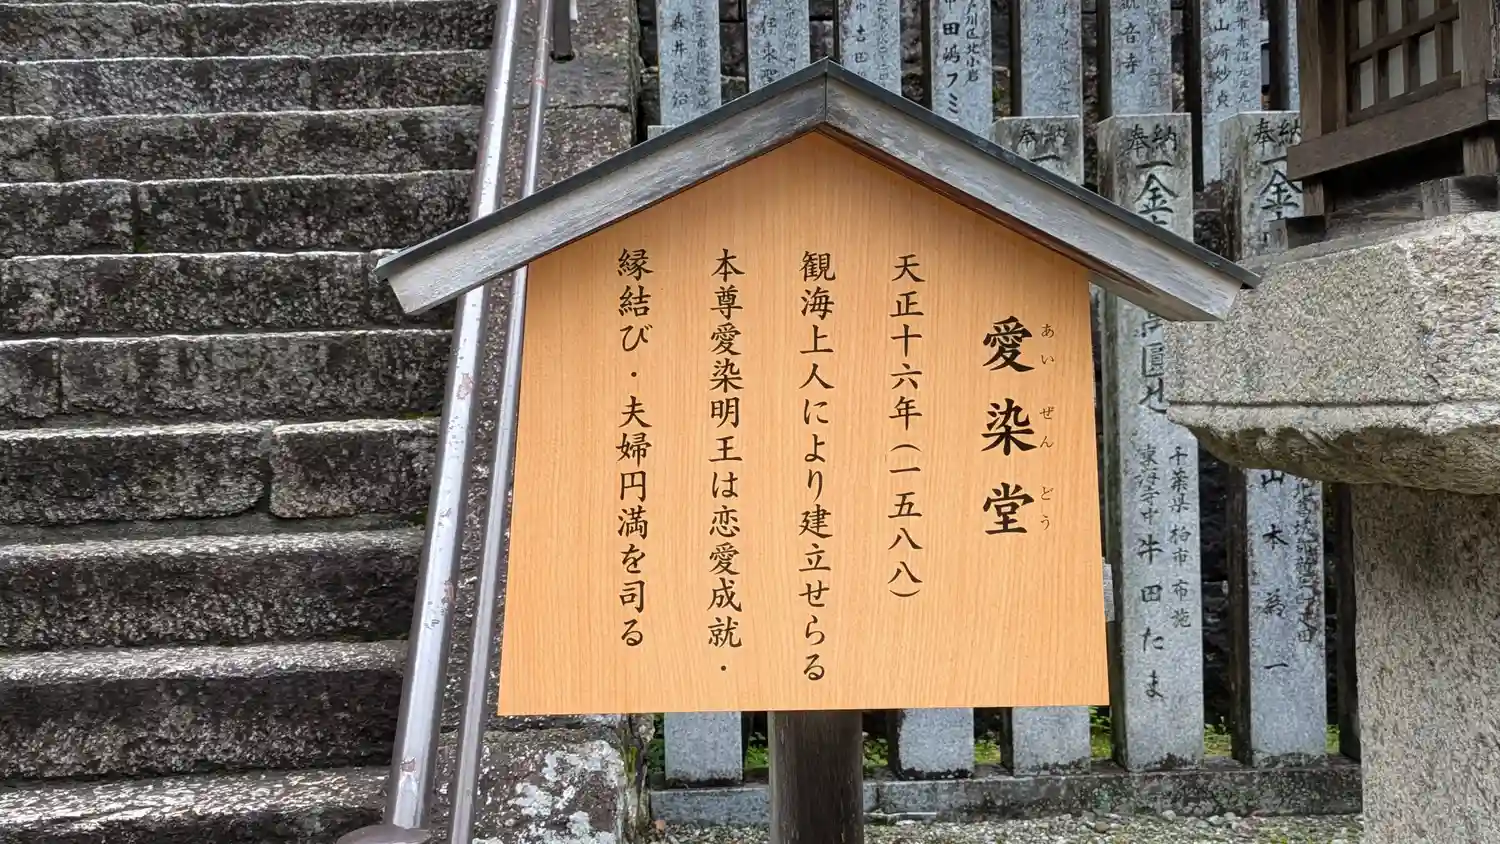 愛染堂
あいぜんどう
天正十六年(一五八八)
観海上人により建立せらる
本尊愛染明王は恋愛成就・
縁結び・夫婦円満を司る
奉納
奉納
一金
奉納
一金
千葉県柏市布施
牛田たま
山本益一
観音寺
吉田
田嶋フミ